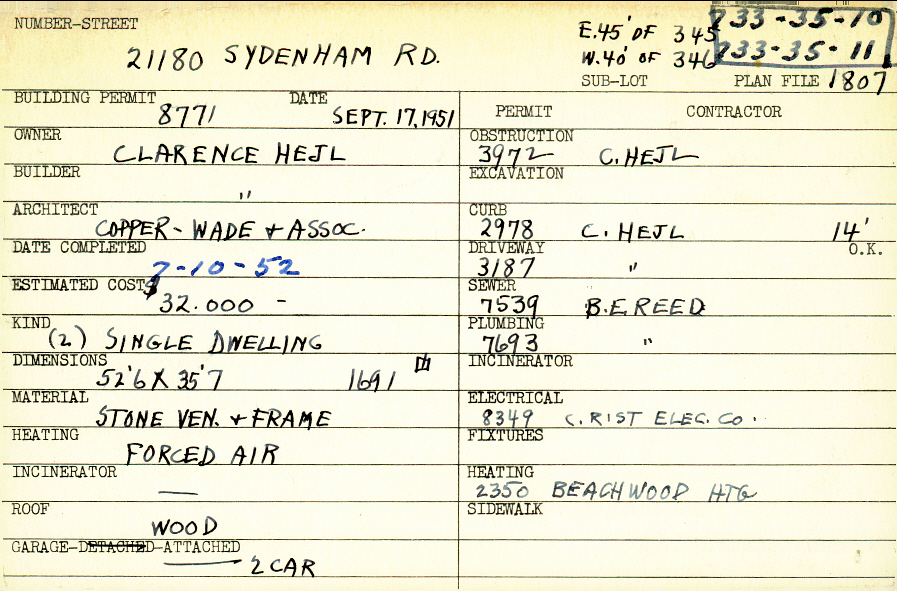 NUMBER-STREET E.45' OF 345 733-35-10
21180 SYDENHAM RD. W.40' OF 346 733-35-11
SUB-LOT PLAN FILE 1807
BUILDING PERMIT DATE PERMIT CONTRACTOR
8771 SEPT. 17, 1951
OWNER OBSTRUCTION
CLARENCE HEJL 3972 C. HEJL
BUILDER EXCAVATION
"
ARCHITECT CURB
COPPER-WADE & ASSOC. 2978 C. HEJL 14'
DATE COMPLETED DRIVEWAY O.K.
7-10-52 3187 "
ESTIMATED COST$ SEWER
32.000 - 7539 B.E.REED
KIND PLUMBING
(2) SINGLE DWELLING 7693 "
DIMENSIONS INCINERATOR
52'6 X 35'7 1691
MATERIAL ELECTRICAL
STONE VEN. & FRAME 8349 C. RIST ELEC. CO.
HEATING FIXTURES
FORCED AIR
INCINERATOR HEATING
— 2350 BEACHWOOD HTG
ROOF SIDEWALK
WOOD
GARAGE-DETACHED-ATTACHED
2 CAR